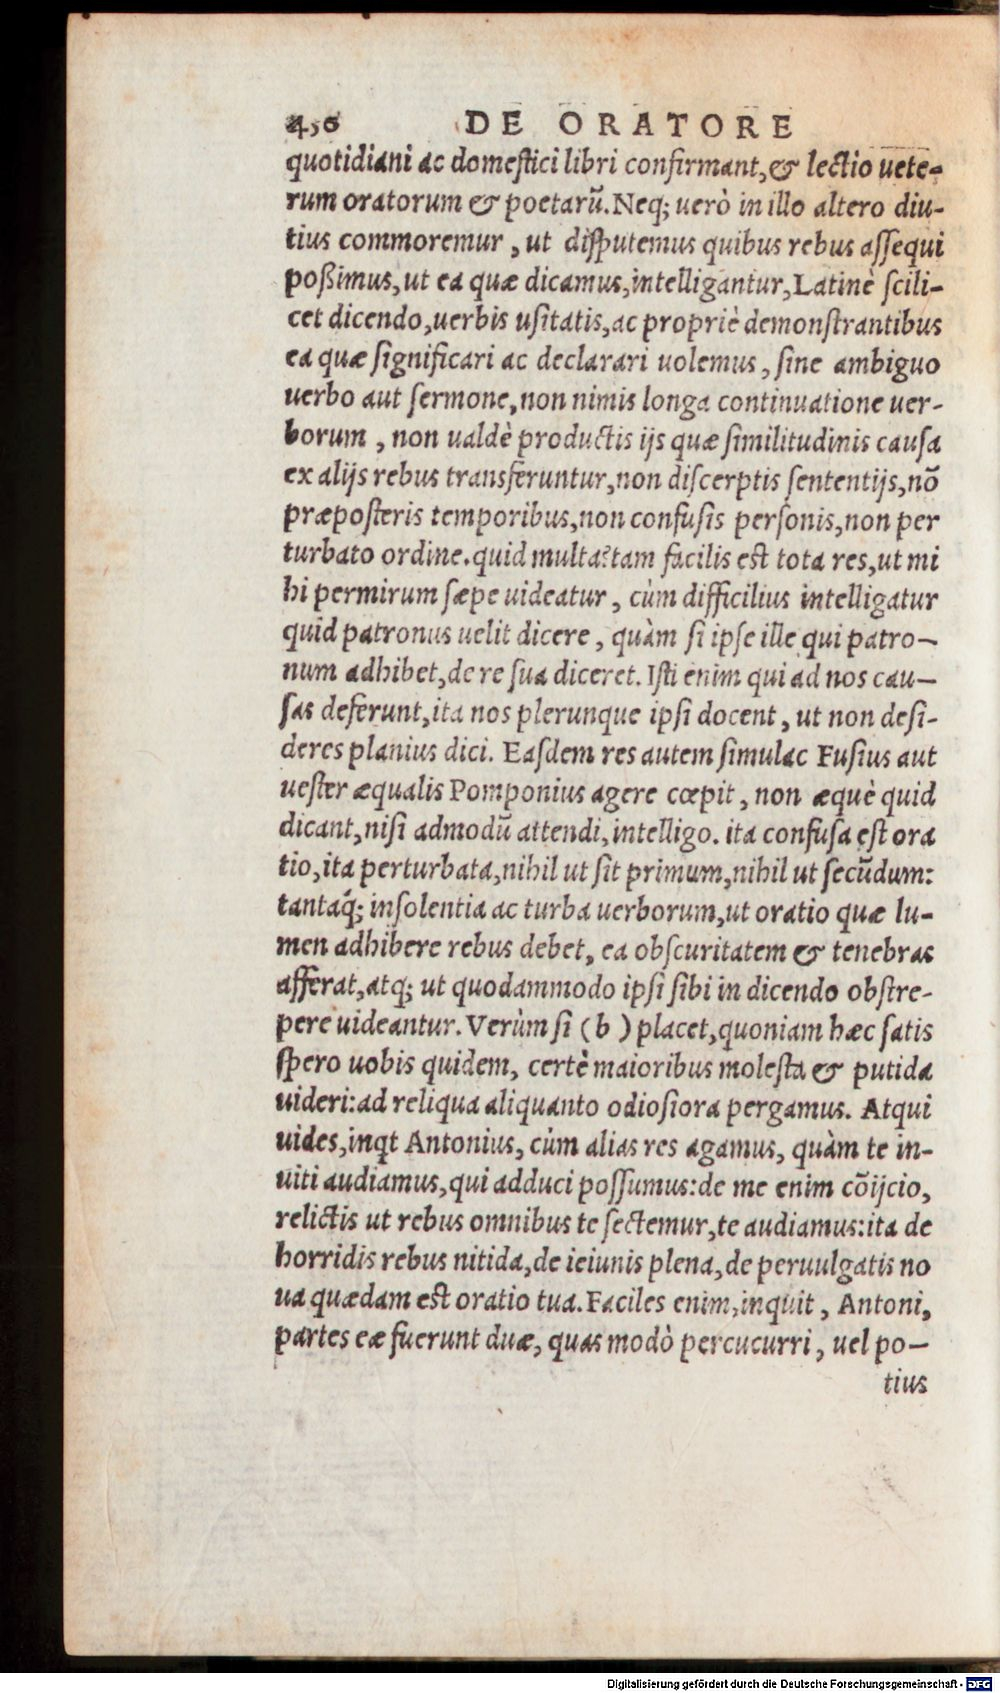 450 DE ORATORE
quotidiani ac domeſtici libri confirmant,& lectio uete-
rum oratorum & poetarũ. Neq; uerò in illo altero diu-
tius commoremur, ut diſputemus quibus rebus aſſequi
poßimus, ut ea quæ dicamus, intelligantur, Latinè ſcili-
cet dicendo, uerbis uſitatis, ac propriè demonſtrantibus
ea quæ ſignificari ac declarari uolemus, ſine ambiguo
uerbo aut ſermone, non nimis longa continuatione uer-
borum, non ualdè productis ijs quæ ſimilitudinis cauſa
ex alijs rebus transferuntur, non diſcerptis ſententijs, nõ
præpoſteris temporibus, non confuſis perſonis, non per
turbato ordine. quid multa? tam facilis eſt tota res, ut mi
hi permirum ſæpe uideatur, cùm difficilius intelligatur
quid patronus uelit dicere, quàm ſi ipſe ille qui patro-
num adhibet, de re ſua diceret. Iſti enim qui ad nos cau-
ſas deferunt, ita nos plerunque ipſi docent, ut non deſi-
deres planius dici. Eaſdem res autem ſimulac Fuſius aut
ueſter æqualis Pomponius agere cœpit, non æquè quid
dicant, niſi admodũ attendi, intelligo. ita confuſa eſt ora
tio, ita perturbata, nihil ut ſit primum, nihil ut ſecũdum:
tantaq́; inſolentia ac turba uerborum, ut oratio quæ lu-
men adhibere rebus debet, ea obſcuritatem & tenebras
afferat, atq; ut quodammodo ipſi ſibi in dicendo obſtre-
pere uideantur. Verùm ſi (b) placet, quoniam hæc ſatis
ſpero uobis quidem, certè maioribus moleſta & putida
uideri: ad reliqua aliquanto odioſiora pergamus. Atqui
uides, inqt Antonius, cùm alias res agamus, quàm te in-
uiti audiamus, qui adduci poſſumus: de me enim cõijcio,
relictis ut rebus omnibus te ſectemur, te audiamus: ita de
horridis rebus nitida, de ieiunis plena, de peruulgatis no
ua quædam eſt oratio tua. Faciles enim, inquit, Antoni,
partes eæ fuerunt duæ, quas modò percucurri, uel po-
tius
Digitalisierung gefördert durch die Deutsche Forschungsgemeinschaft - DFG